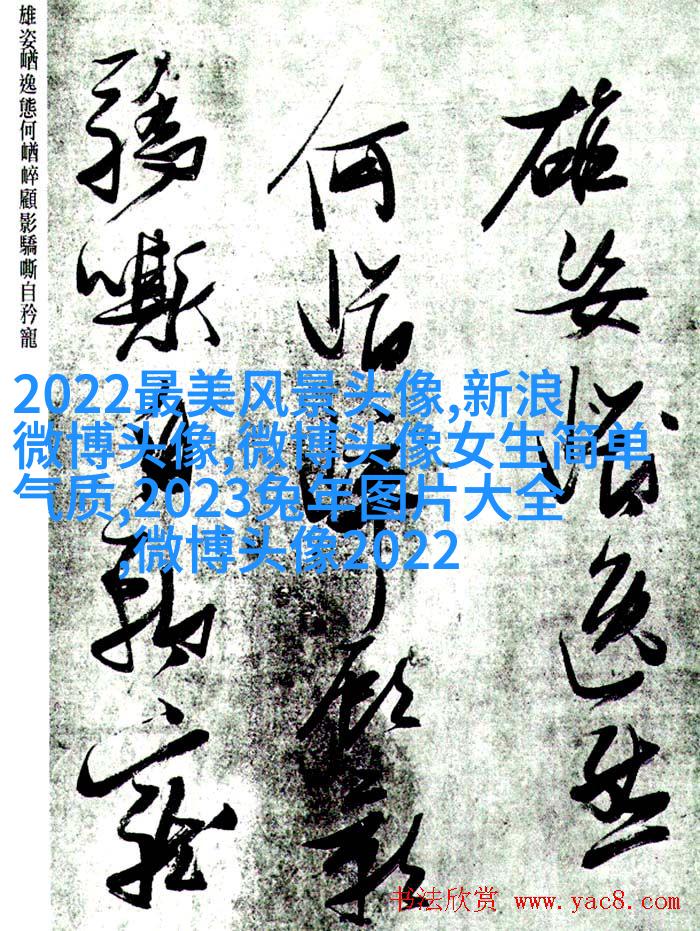 雄姿崷逸態
何崷崒顧影
驕嘶自矜寵
雄姿崷逸態何崷崒顧影驕嘶自矜寵
2022最美风景头像,新浪
微博头像,微博头像女生简单
气质,2023兔年图片大全
,微博头像2022
书法欣赏 www.yac8.com